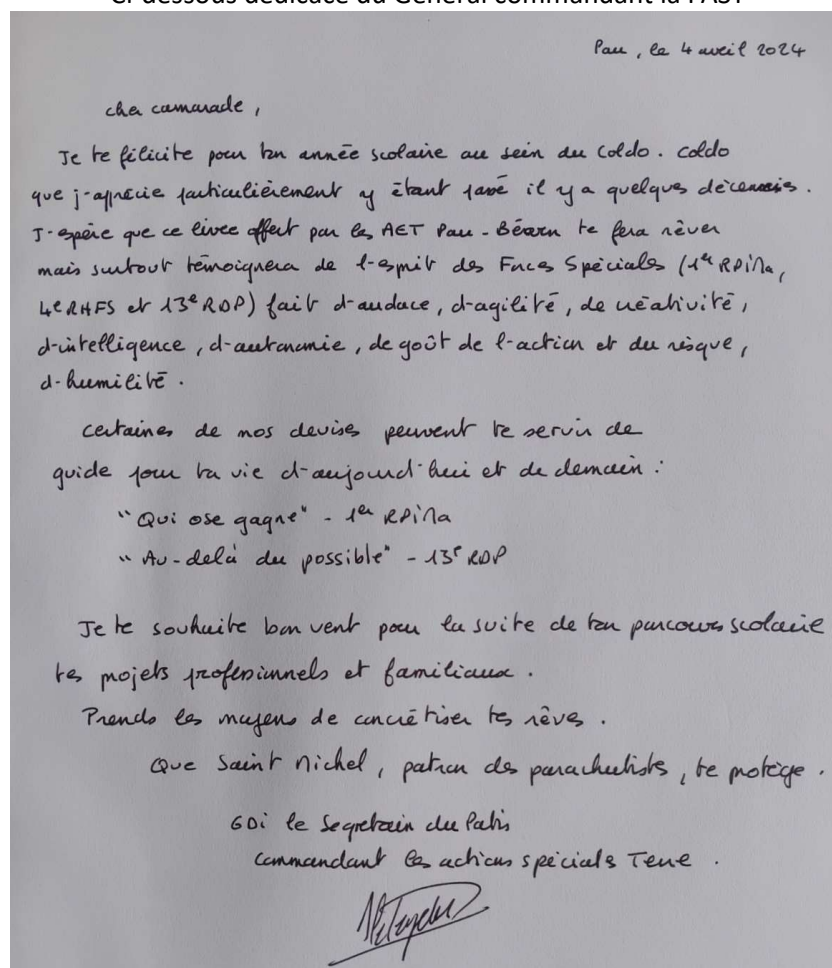 Ci-dessous dédicace du Général commandant la FAST
Pau, le 4 avril 2024
cher camarade,
Je te félicite pour ton année scolaire au sein du Coldo. Coldo
que j'apprécie particulièrement y étant passé il y a quelques décennies.
J'espère que ce livre offert par les AET Pau-Béarn te fera rêver
mais surtout témoignera de l'esprit des Forces Spéciales (1er RPIMa,
4e RHFS et 13e RDP) fait d'audace, d'agilité, de créativité,
d'intelligence, d'autonomie, de goût de l'action et du risque,
d'humilité.
certaines de nos devises peuvent te servir de
guide pour ta vie d'aujourd'hui et de demain :
"Qui ose gagne" - 1er RPIMa
"Au-delà du possible" - 13e RDP
Je te souhaite bon vent pour la suite de ton parcours scolaire
tes projets professionnels et familiaux.
Prends les moyens de concrétiser tes rêves.
Que Saint Michel, patron des parachutistes, te protège.
GDI le Segretain du Patis
commandant les actions spéciales Terre.